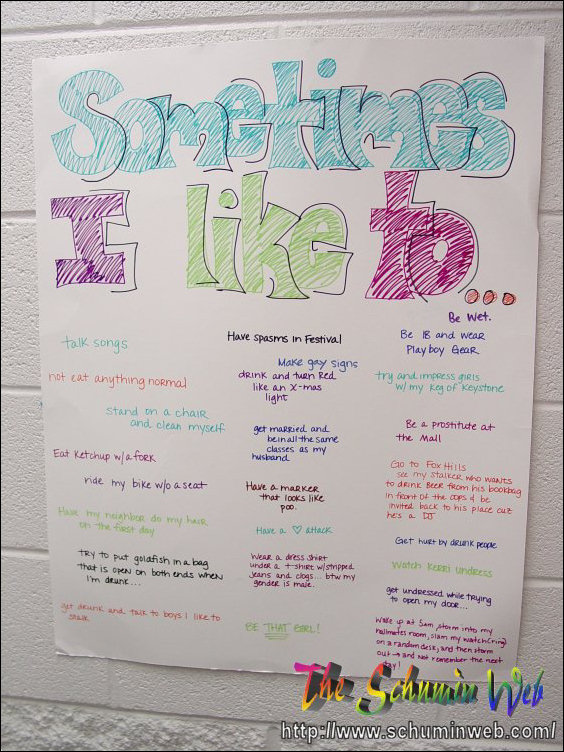 Sometimes
I like to...
talk songs
not eat anything normal
stand on a chair
and clean myself
Eat Ketchup w/a fork
ride my bike w/o a seat
Have my neighbor do my hair
on the first day
try to put goldfish in a bag
that is open on both ends when
I'm drunk...
get drunk and talk to boys I like to
stalk
Have spasms in Festival
Make gay signs
drink and turn Red
like an X-mas
light
get married and
be in all the same
classes as my
husband
Have a marker
that looks like
poo.
Have a ♡ attack
Wear a dress shirt
under a t-shirt w/stripped
jeans and clogs... btw my
gender is male.
BE THAT GIRL!
Be wet.
Be 18 and wear
Playboy Gear
try and impress girls
w/ my keg of Keystone
Be a prostitute at
the Mall
Go to Fox Hills
see my stalker who wants
to drink Beer from his bookbag
in front of the cops & be
invited back to his place cuz
he's a DJ
Get hurt by drunk people
Watch Kerri undress
get undressed while trying
to open my door...
Wake up at 5am, storm into my
hallmates room, slam my watch (ring)
on a random desk, and then storm
out → and not remember the next
day!
The Schumin Web
http://www.schuminweb.com/